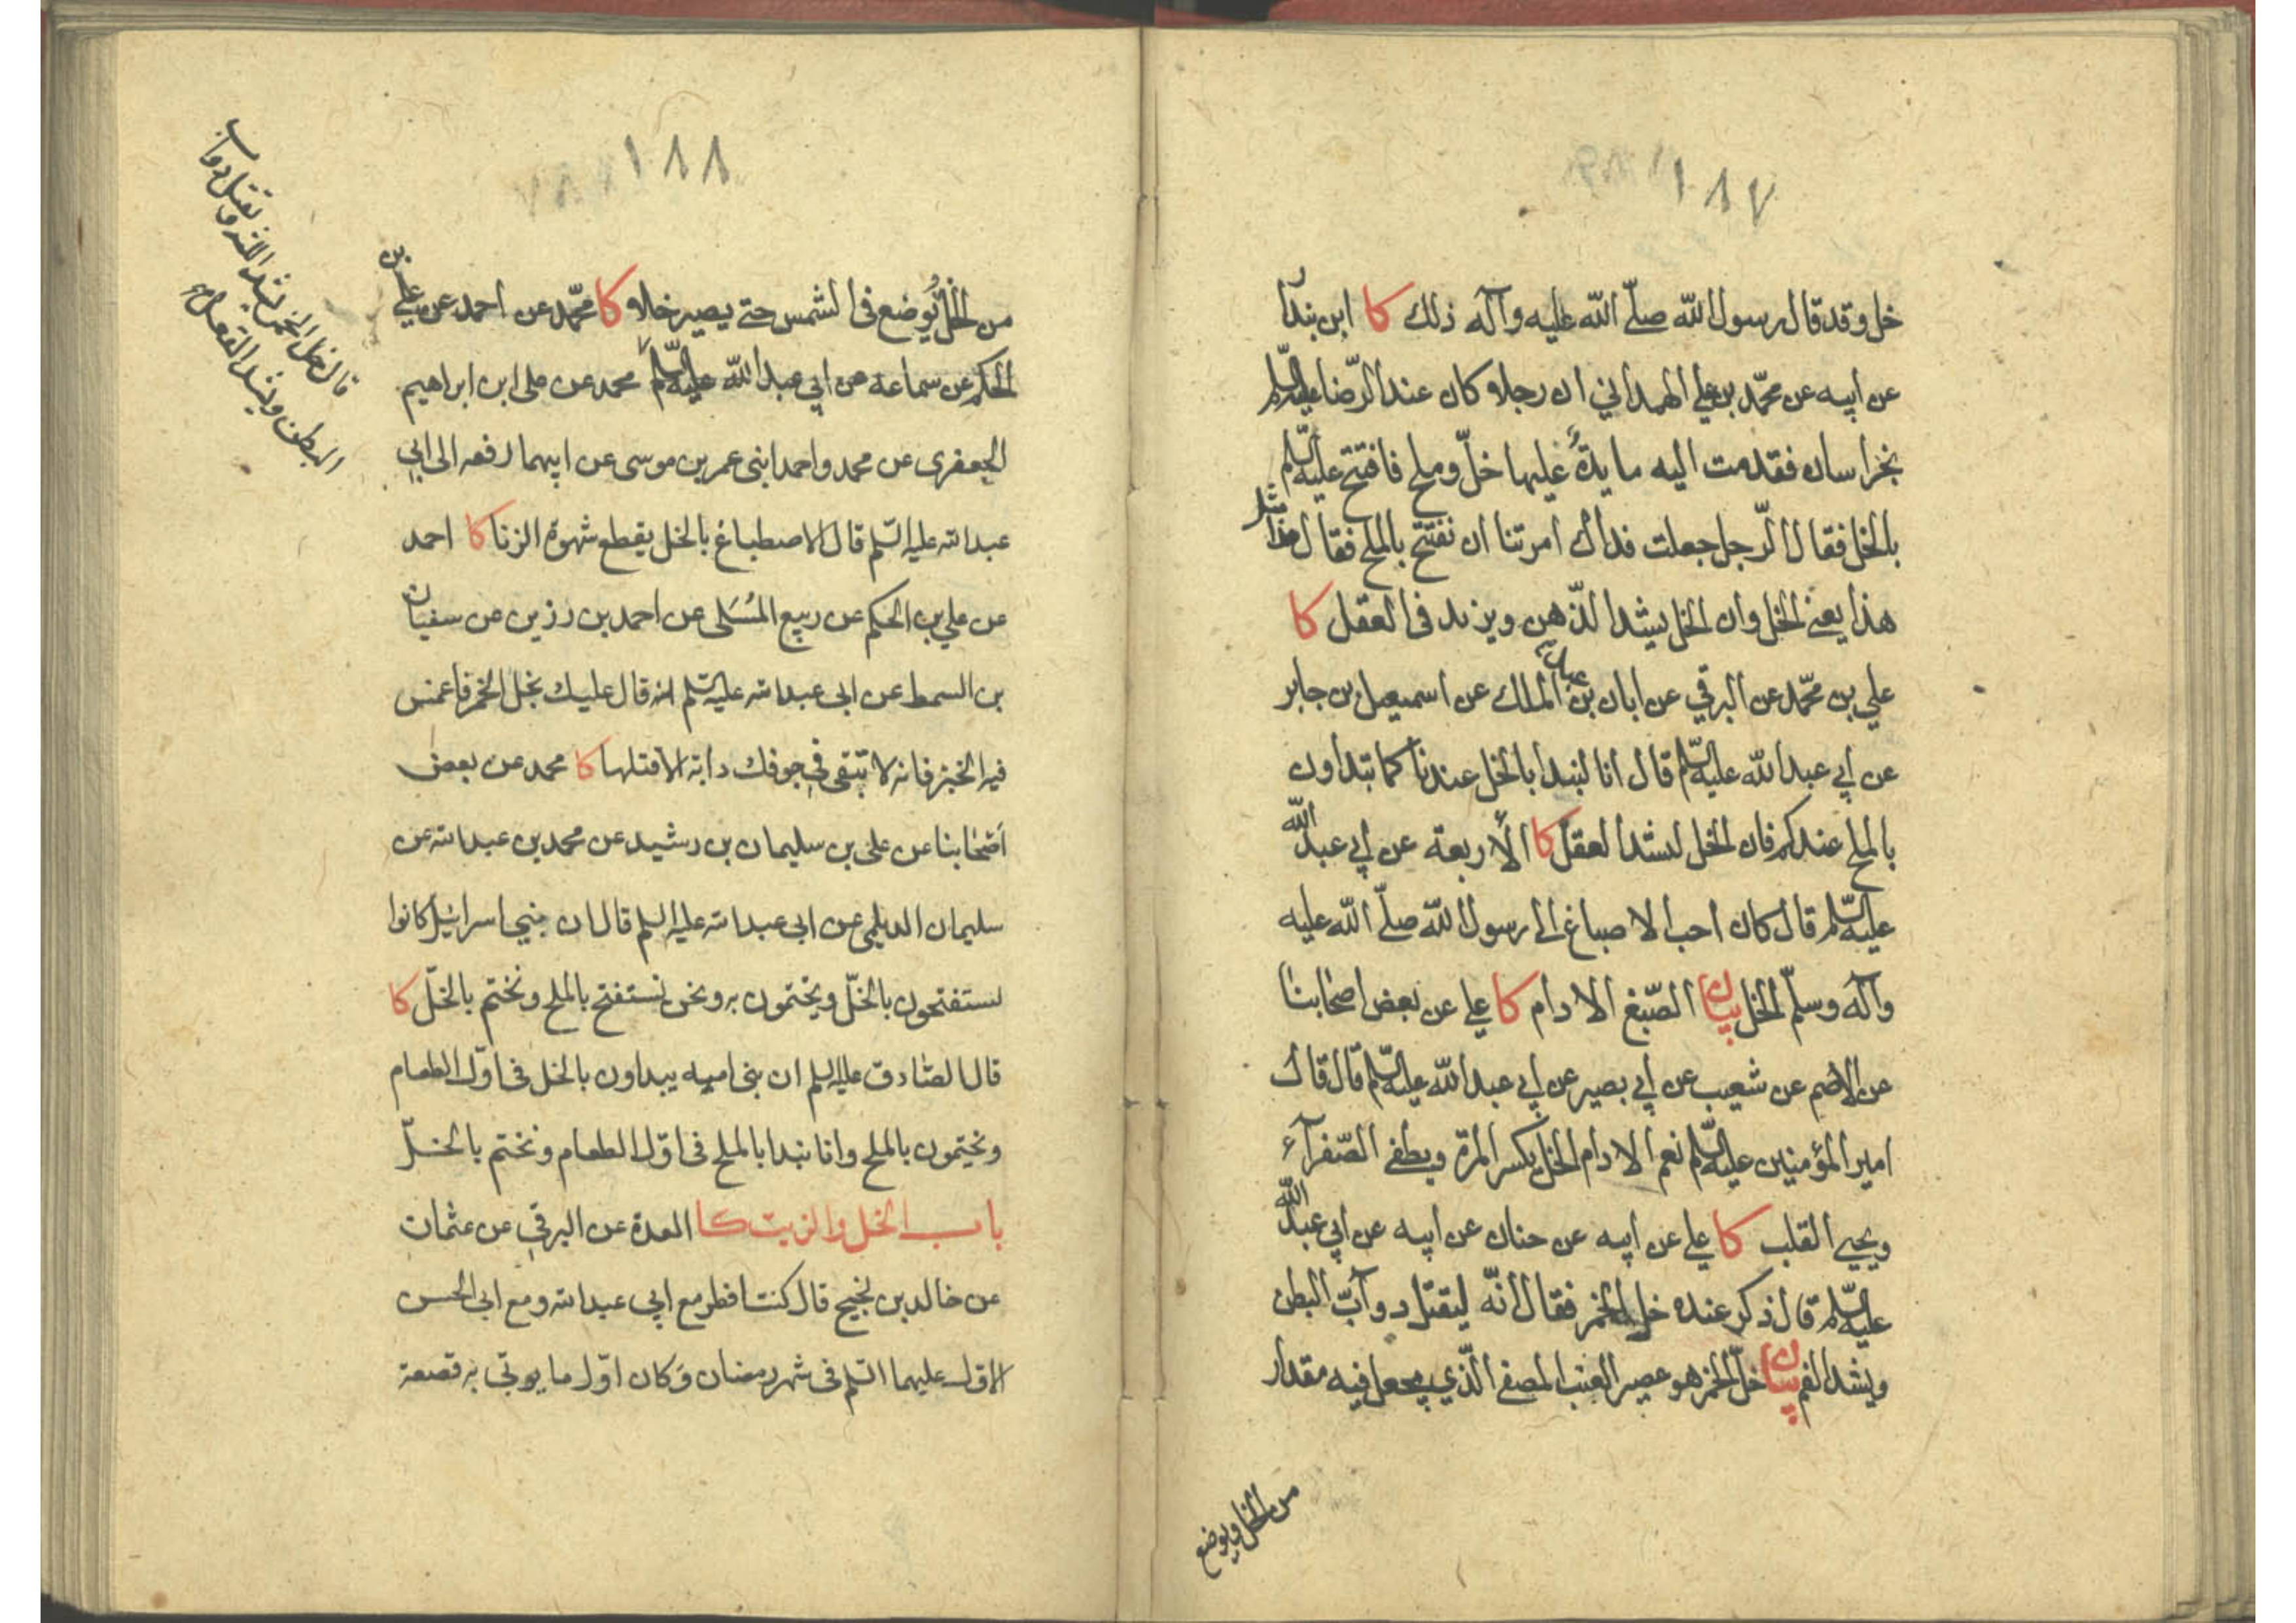 ١٨٧
خل وقد قال رسول الله صلّى الله عليه وآله ذلك كا ابن بندار
عن ابيه عن محمّد بن علي الهمداني ان رجلا كان عند الرّضا عليه السّلم
بخراسان فقدمت اليه مايدة عليها خلّ وملح فافتتح عليه السّلم
بالخل فقال الرّجل جعلت فداك امرتنا ان نفتتح بالملح فقال هذا مثل
هذا يعني الخل وان الخل يشد الذّهن ويزيد فى العقل كا
علي بن محمّد عن البرقي عن ابان بن عبد الملك عن اسمعيل بن جابر
عن ابي عبد الله عليه السّلم قال انا لنبدا بالخل عندنا كما تبداون
بالملح عندكم فان الخل ليشد العقل كا الأربعة عن ابي عبد الله
عليه السّلم قال كان احب الاصباغ الى رسول الله صلّى الله عليه
وآله وسلّم الخل بيان الصّبغ الادام كا علي عن بعض اصحابنا
عن الاصم عن شعيب عن ابي بصير عن ابي عبد الله عليه السّلم قال قال
امير المؤمنين عليه السّلم نعم الادام الخل يكسر المرّة ويطفى الصّفرآء
ويحيي القلب كا علي عن ابيه عن حنان عن ابيه عن ابي عبد الله
عليه السّلم قال ذكر عنده خل الخمر فقال انّه ليقتل دوآبّ البطن
ويشد الفم بيان خلّ الخمر هو عصير العنب المصفى الّذي يجعل فيه مقدار
من الخل ويوضع
١٨٨
من الخلّ ويُوضع فى الشمس حتى يصير خلا كا محمّد عن احمد عن علي بن
الحكم عن سماعه عن ابي عبد الله عليه السّلم محمد عن على ابن ابراهيم
الجعفرى عن محمد واحمد ابنى عمر بن موسى عن ابيهما رفعه الى ابي
عبد الله عليه السّلم قال الاصطباغ بالخل يقطع شهوة الزنا كا احمد
عن علي بن الحكم عن ربيع المُسَلى عن احمد بن رزين عن سفيان
بن السمط عن ابى عبد الله عليه السّلم انه قال عليك بخل الخمر فاغمس
فيه الخبز فانه لا تبقى في جوفك دابة الا قتلها كا محمد عن بعض
أصحابنا عن على بن سليمان بن رشيد عن محمد بن عبد الله عن
سليمان الديلمى عن ابى عبد الله عليه السلم قال ان بني اسرائيل كانوا
يستفتحون بالخلّ ويختمون به ونحن نستفتح بالملح ونختم بالخلّ كا
قال الصّادق عليه السلم ان بنى اميه يبداون بالخل فى اوّل الطعام
ونختمون بالملح وانا نبدا بالملح فى اوّل الطعام ونختم بالخلّ
باب الخل والزيت كا العدة عن البرقي عن عثمان
عن خالد بن نجيح قال كنت افطر مع ابي عبد الله ومع ابى الحسن
الاوّل عليهما السّلم فى شهر رمضان وكان اوّل ما يوتى به قصعة
قال خل الخمر يشد اللثه و يقتل دواب
البطن ويشد العقل